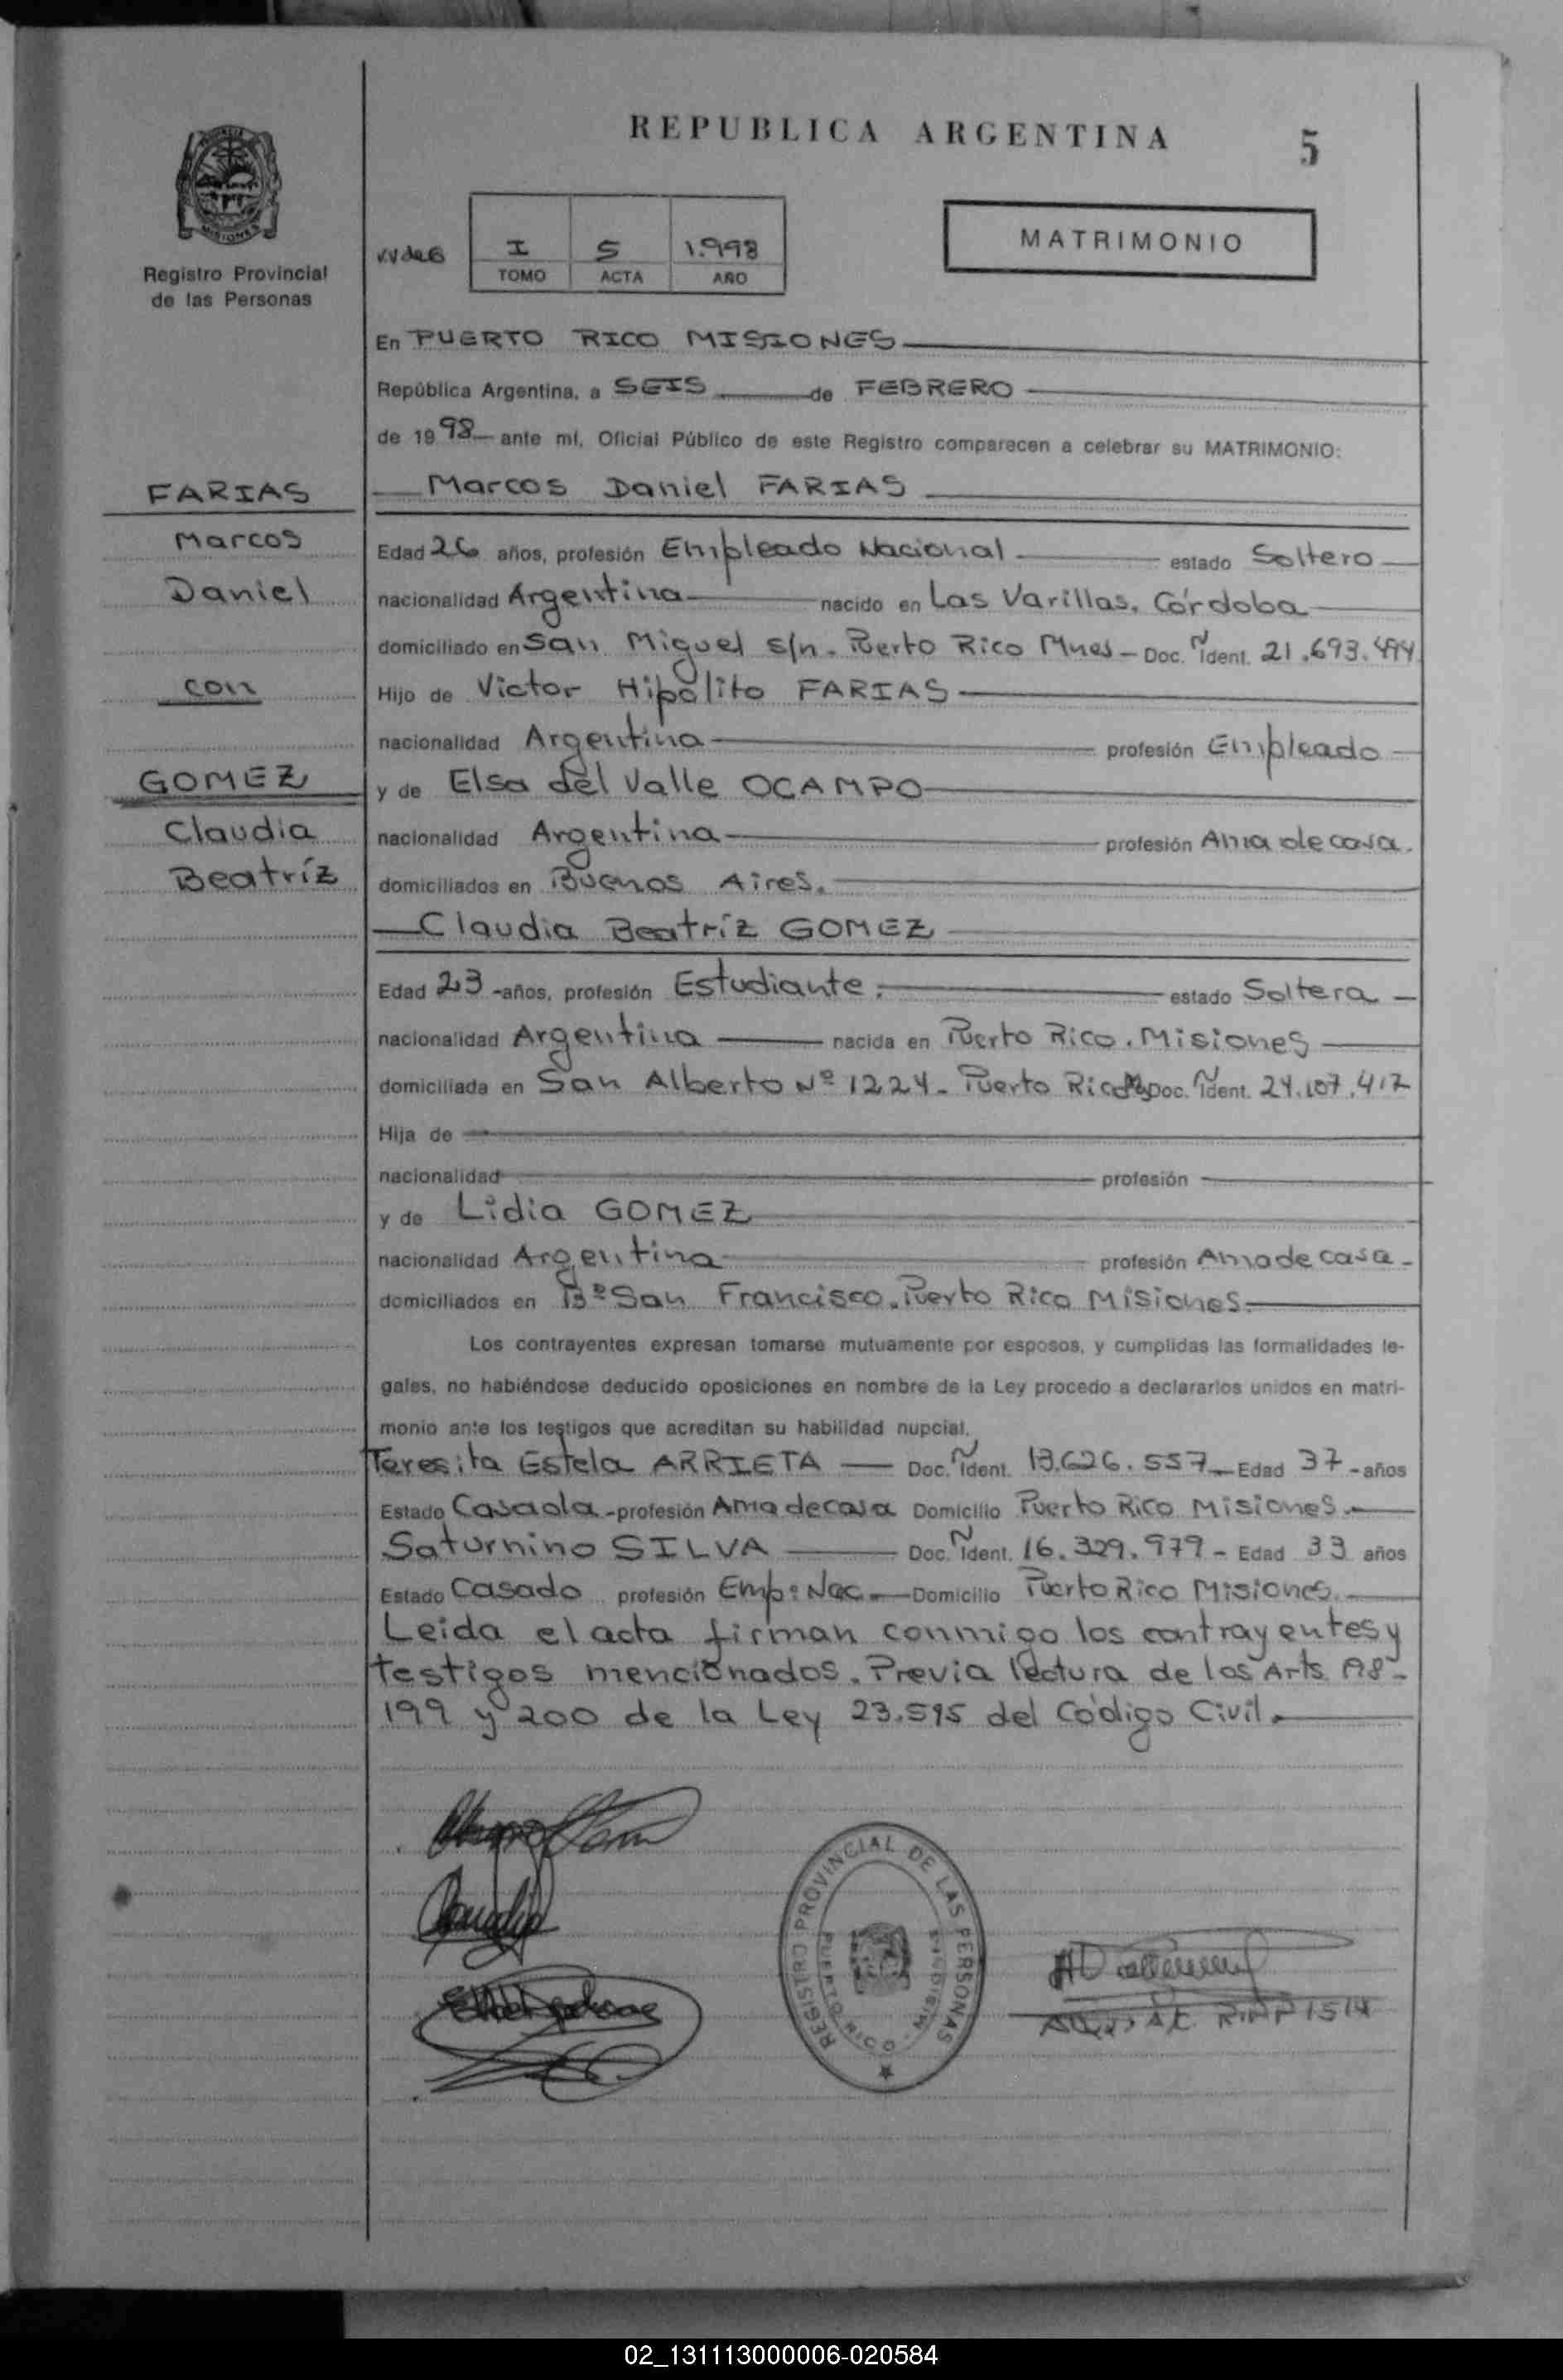 REPUBLICA ARGENTINA
5
MISIONES
Registro Provincial
de las Personas
I S 1.998
TOMO ACTA AÑO
MATRIMONIO
En PUERTO RICO MISIONES
República Argentina, a SEIS de FEBRERO
de 1998 ante mí, Oficial Público de este Registro comparecen a celebrar su MATRIMONIO:
FARIAS
Marcos
Daniel
con
GOMEZ
Claudia
Beatríz
Marcos Daniel FARIAS
Edad 26 años, profesión Empleado Nacional estado Soltero
nacionalidad Argentina nacido en Las Varillas, Córdoba
domiciliado en San Miguel s/n. Puerto Rico Mnes - Doc. Ident. 21.693.494
Hijo de Victor Hipólito FARIAS
nacionalidad Argentina profesión Empleado
y de Elsa del Valle OCAMPO
nacionalidad Argentina profesión Ama de casa.
domiciliados en Buenos Aires.
Claudia Beatríz GOMEZ
Edad 23 -años, profesión Estudiante. estado Soltera
nacionalidad Argentina nacida en Puerto Rico. Misiones
domiciliada en San Alberto Nº 1224 - Puerto Rico Doc. Ident. 24.107.417
Hija de
nacionalidad profesión
y de Lidia GOMEZ
nacionalidad Argentina profesión Ama de casa -
domiciliados en Bº San Francisco. Puerto Rico Misiones.
Los contrayentes expresan tomarse mutuamente por esposos, y cumplidas las formalidades le-
gales, no habiéndose deducido oposiciones en nombre de la Ley procedo a declararlos unidos en matri-
monio ante los testigos que acreditan su habilidad nupcial.
Teresita Estela ARRIETA Doc. Ident. 13.626.557 Edad 37 - años
Estado Casada - profesión Ama de casa Domicilio Puerto Rico Misiones.
Saturnino SILVA Doc. Ident. 16.329.979 - Edad 33 años
Estado Casado profesión Emp: Nac. Domicilio Puerto Rico Misiones.
Leida el acta firman conmigo los contrayentes y
testigos mencionados. Previa lectura de los Arts. 198-
199 y 200 de la Ley 23.515 del Código Civil.
REGISTRO PROVINCIAL DE LAS PERSONAS
PUERTO RICO - MISIONES
02_131113000006-020584